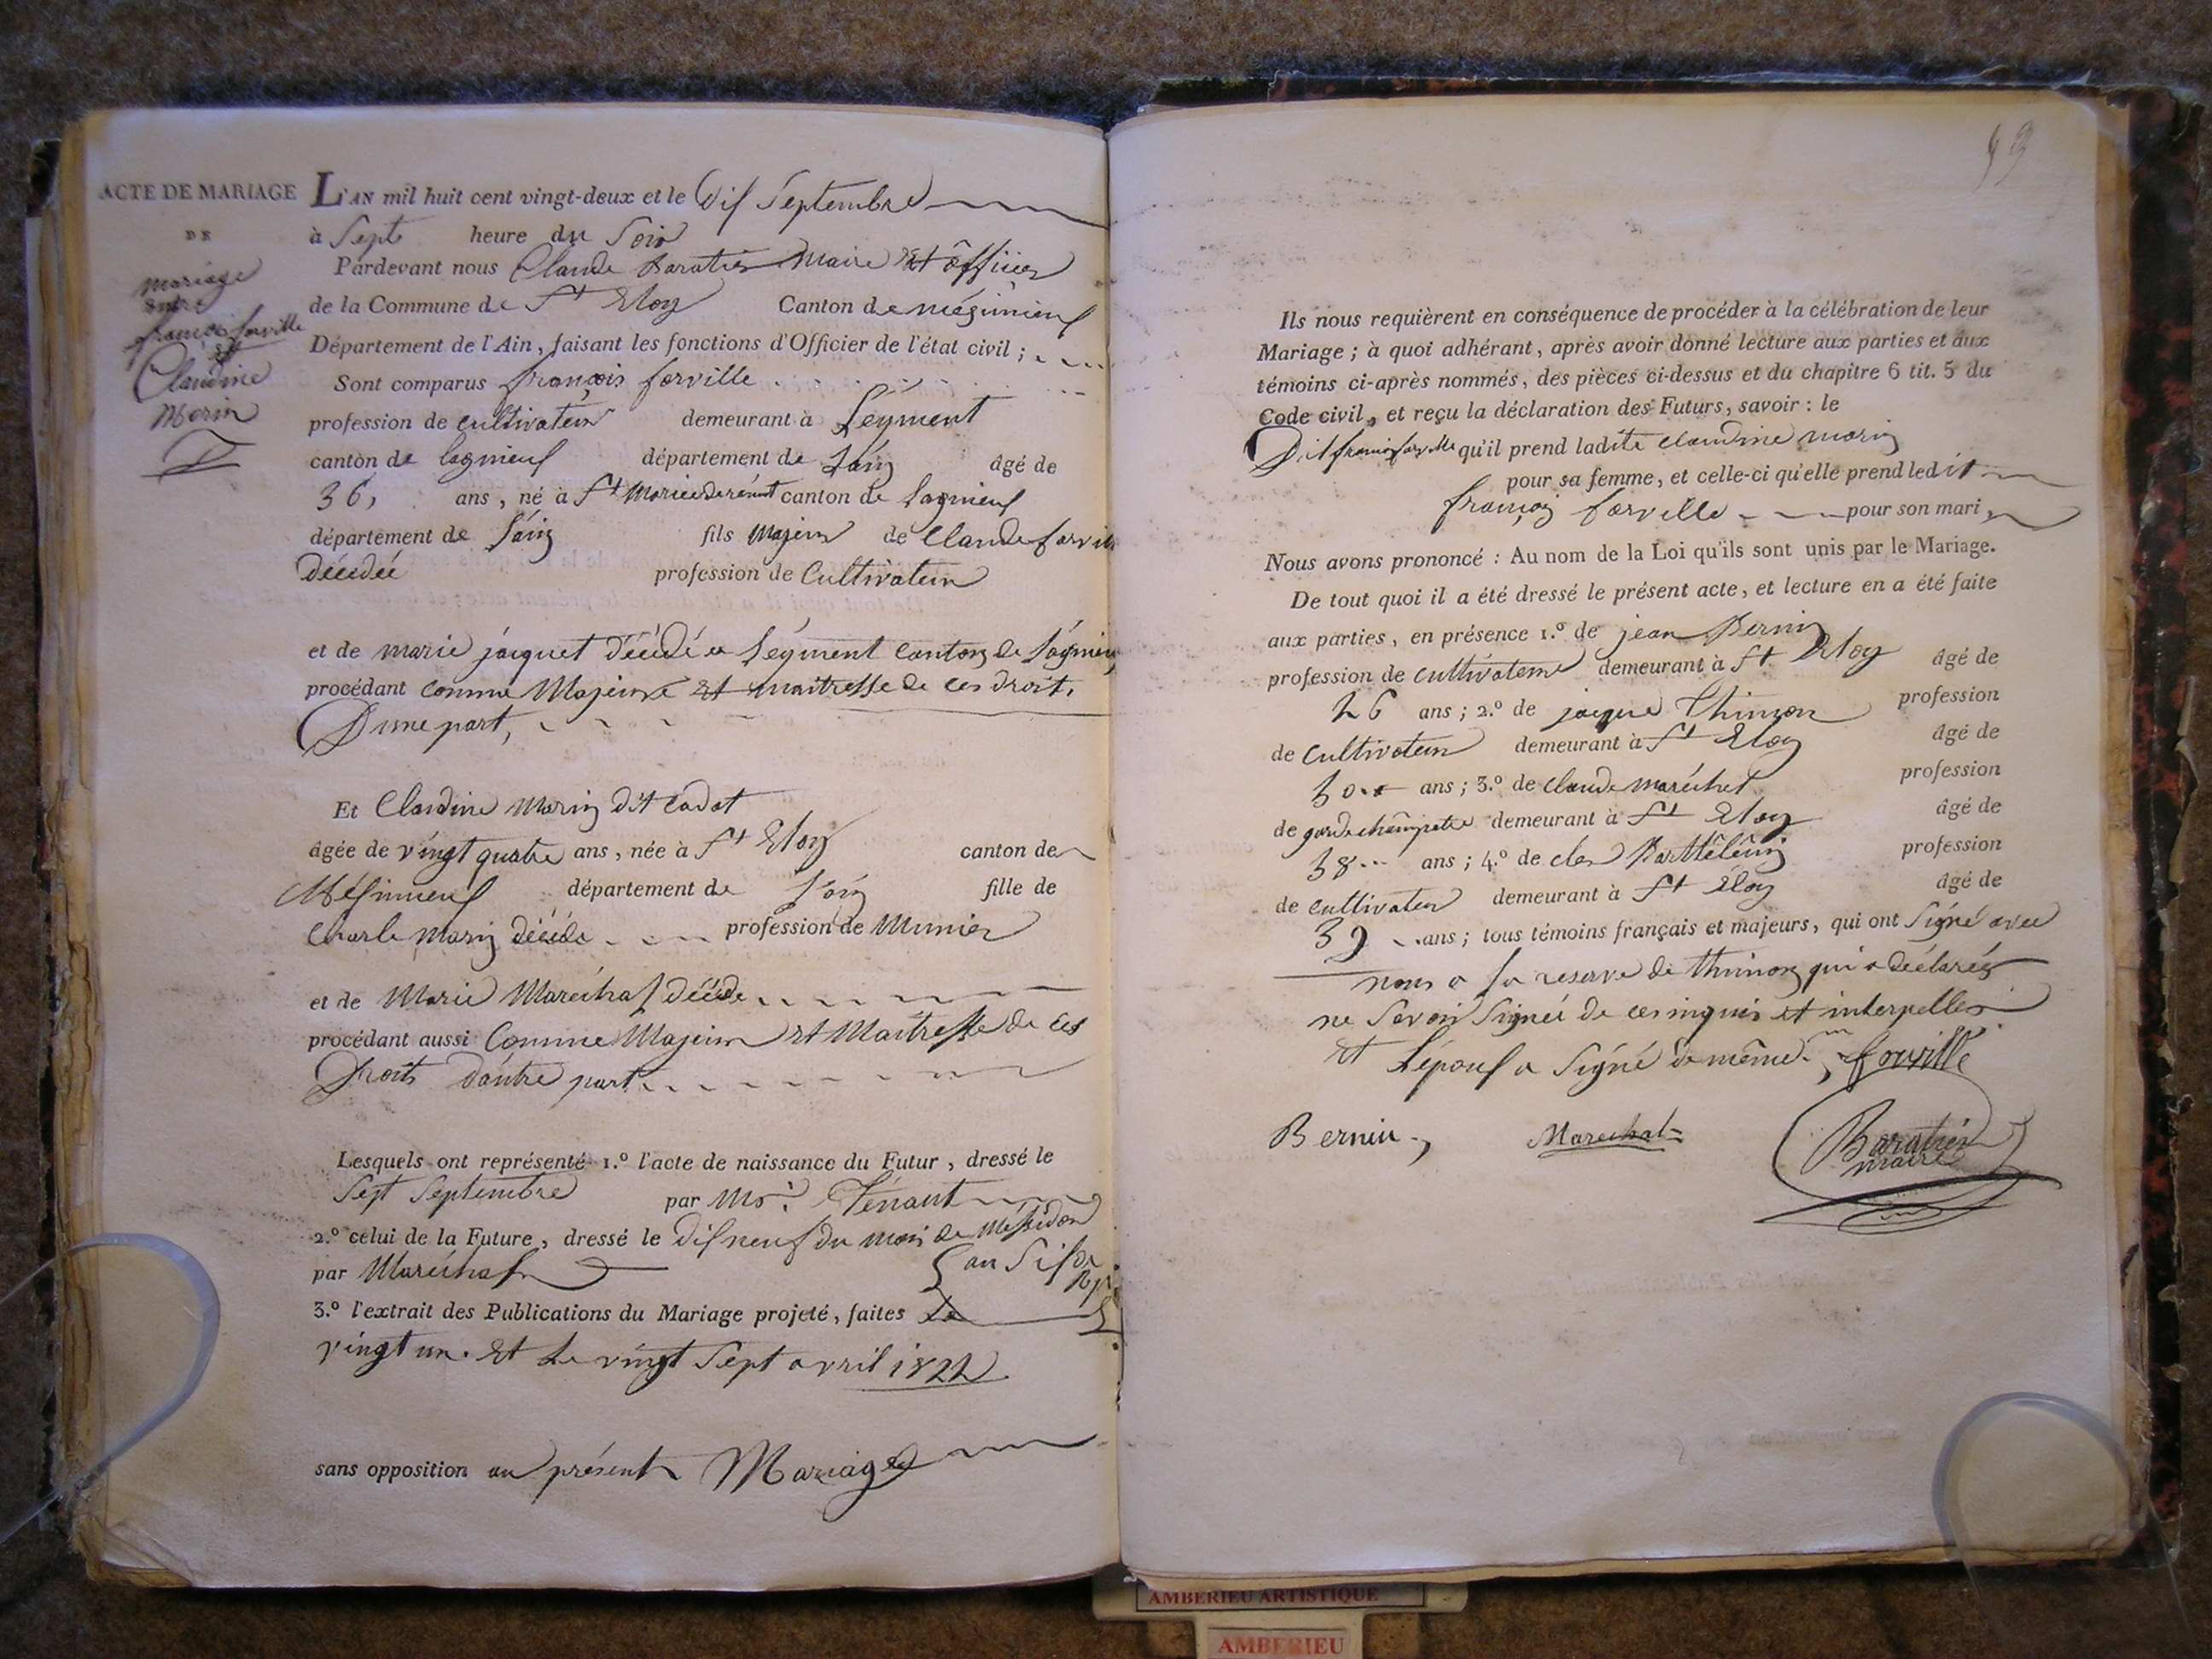 ACTE DE MARIAGE
DE
mariage
entre
françois forville
et
Claudine
Morin
L'AN mil huit cent vingt-deux et le Dix Septembre
à Sept heure du Soir
Pardevant nous Claude Baratier Maire Et ôfficier
de la Commune de St Eloy Canton de mégimieux
Département de l'Ain, faisant les fonctions d'Officier de l'état civil ;
Sont comparus françois forville
profession de cultivateur demeurant à Léyment
canton de lagnieux département de L'áin âgé de
36, ans, né à St Mauricederémt canton de Lagnieux
département de L'áin fils Majeur de Claude forville
décédée profession de Cultivateur
et de marie jacquet décédé a Léyment Canton de Lágnieu
procédant comme Majeure Et maitresse de ces droit,
Dune part,
Et Claudine Morin dit Cadot
âgée de vingt quatre ans, née à St Eloy canton de
Mésimieux département de L'ain fille de
Charle Morin décédé profession de Munier
et de Marie Maréchal décéde
procédant aussi Comme Majeur Et Maitresse de Ces
Droits D'autre part
Lesquels ont représenté 1.º l'acte de naissance du Futur, dressé le
Sept Septembre par Mr. Ténant
2.º celui de la Future, dressé le Dix neuf du mois de Méssidor
par Maréchal an Six de Rp.
3.º l'extrait des Publications du Mariage projeté, faites Le
vingt un. Et Le vingt Sept avril 1822
sans opposition au présent Mariage
Ils nous requièrent en conséquence de procéder à la célébration de leur
Mariage ; à quoi adhérant, après avoir donné lecture aux parties et aux
témoins ci-après nommés, des pièces ci-dessus et du chapitre 6 tit. 5 du
Code civil, et reçu la déclaration des Futurs, savoir : le
Dit françois forville qu'il prend ladite claudine morin
pour sa femme, et celle-ci qu'elle prend ledit
françois forville pour son mari,
Nous avons prononcé : Au nom de la Loi qu'ils sont unis par le Mariage.
De tout quoi il a été dressé le présent acte, et lecture en a été faite
aux parties, en présence 1.º de jean Bernin
profession de cultivateur demeurant à St Eloy âgé de
26 ans ; 2.º de jacque Thimon profession
de Cultivateur demeurant à St Eloy âgé de
30 ans ; 3.º de claude maréchal profession
de garde chámpatre demeurant à St Eloy âgé de
38 ans ; 4.º de cler Barthêlêmi profession
de cultivateur demeurant à St Eloy âgé de
39 ans ; tous témoins français et majeurs, qui ont Signé avec
nous a la reserve de thimon qui a déclarés
ne Savoir Signér de ce enquis et interpeller
Et L'épouse a Signé de même. forville
Bernin
Marechal
Baratier
maire
AMBERIEU ARTISTIQUE
AMBERIEU